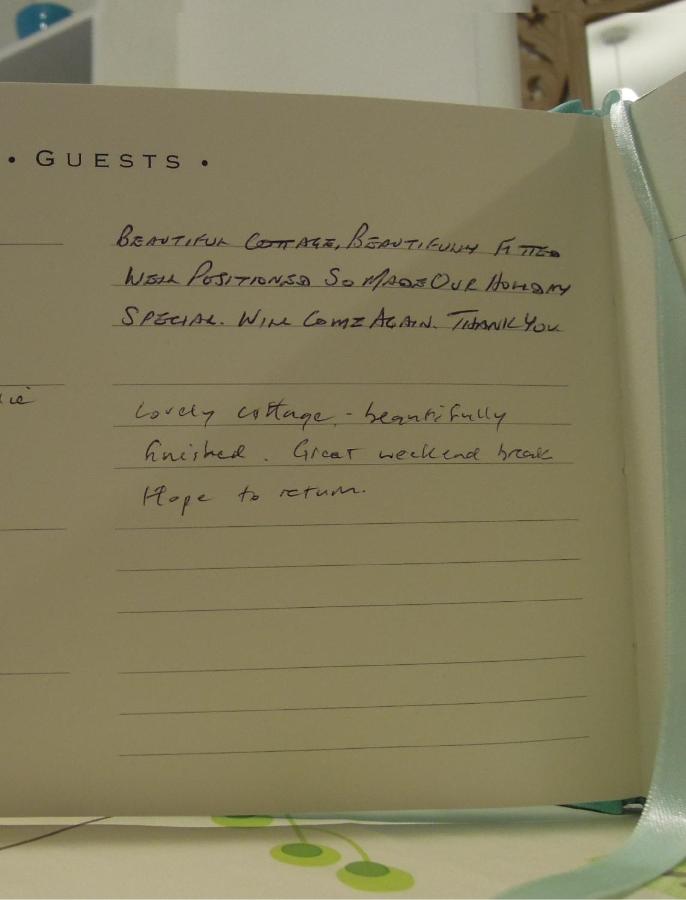 • GUESTS •
BEAUTIFUL COTTAGE, BEAUTIFULLY FITTED
WELL POSITIONED SO MADE OUR HOLIDAY
SPECIAL. WILL COME AGAIN. THANK YOU
Lovely cottage - beautifully
finished. Great weekend break
Hope to return.